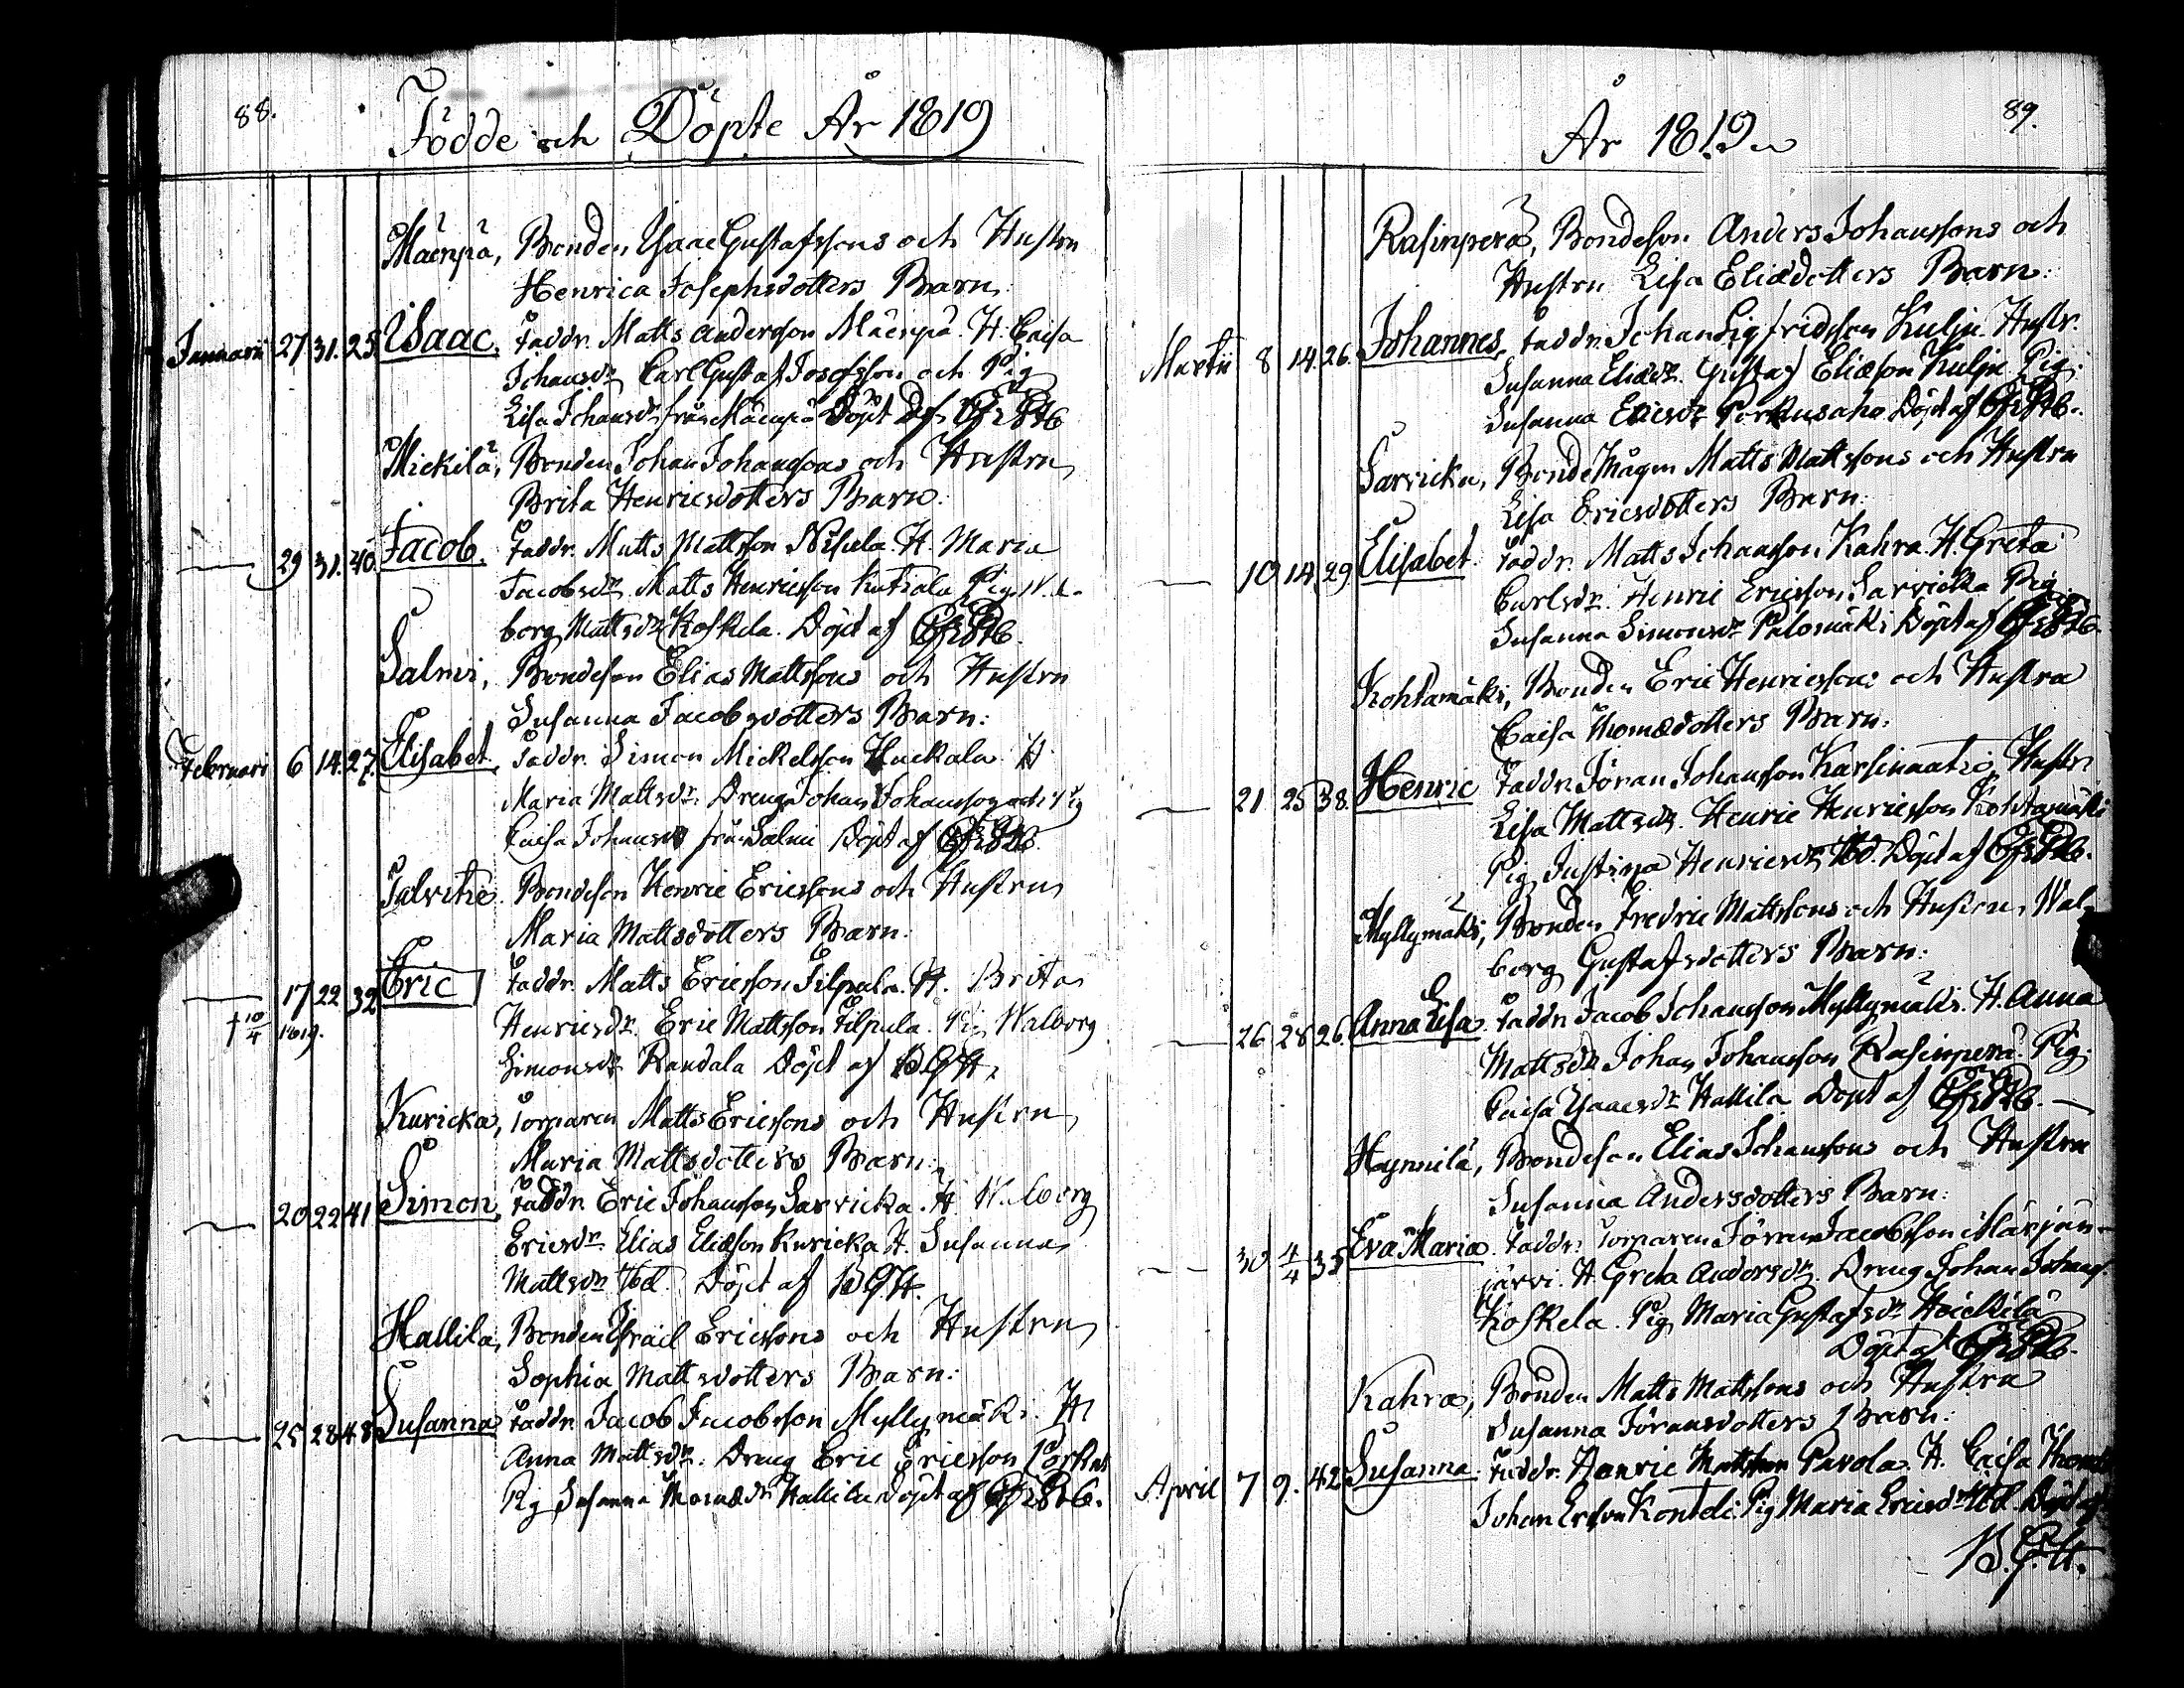 88.
Födde och Döpte År 1819
Mäenpä, Bonden Isaac Gustafssons och Hustru
Henrica Josephsdotters Barn
Januarii 27 31. 25 Isaac. Faddr. Matts Andersson Mäenpä. H. Caisa
Johansdr Carl Gustaf Josefsson och Pig
Lisa Johansdr från Mäenpä Döpt af
Mickilä, Bonden Johan Johanssons och Hustru
Brita Henricsdotters Barn.
29 31. 40. Jacob. Faddr. Matts Mattsson Nisula. H. Maria
Jacobsdr. Matts Henricsson Pig. Wal-
borg Mattsdr Koskela. Döpt af
Salmi, Bondeson Elias Mattssons och Hustru
Susanna Jacobsdotters Barn:
Februari 6 14. 27. Elisabet. Faddr. Simon Mickelsson Huckala H
Maria Mattsdr. Dreng Johan Johansson och Pig
Caisa Johansdr från Salmi Döpt af
Talvitie. Bondeson Henric Ericssons och Hustru
Maria Mattsdotters Barn.
17 22 32 Eric Faddr. Matts Ericsson Filpula. H. Brita
† 10/4 1819. Henricsdr. Eric Mattsson Filpula. Pig Walborg
Simonsdr Randala Döpt af B G H.
Kuricka, Torparen Matts Ericssons och Hustru
Maria Mattsdotters Barn.
20 22 41 Simon, Faddr. Eric Johansson Sarvicka. H. Walborg
Ericsdr. Elias Eliæson Kuricka H. Susanna
Mattsdr Ibd. Döpt af B G H.
Hallila, Bonden Israel Ericssons och Hustru
Sophia Mattsdotters Barn:
25 28 48 Susanna Faddr. Jacob Jacobsson Myllymäki. H
Anna Mattsdr. Dreng Eric Ericsson
Pig Susanna Thomædr Hallila Döpt af
89.
År 1819
Rasinperä, Bondeson Anders Johanssons och
Hustru Lisa Eliædotters Barn:
Martii 8 14. 26. Johannes, Faddr. Johan Sigfridsson Kulju. Hustr.
Susanna Eliædr. Gustaf Eliæson Kulju Pig.
Susanna Ericsdr Porkusaho Döpt af
Sarvicka, Bonde Mågen Matts Mattssons och Hustru
Lisa Ericsdotters Barn:
10 14 29 Elisabet. Faddr. Matts Johansson Kahra. H. Greta
Carlsdr. Henric Ericsson Sarvicka Pig
Susanna Simonsdr Palomäki Döpt af
Kohtamäki, Bonden Eric Henricssons och Hustru
Caisa Thomædotters Barn:
21 25 38. Henric Faddr. Jöran Johansson Hustr.
Lisa Mattsdr. Henric Henricsson Kohtamäki
Pig Justina Henricsdr Ibd. Döpt af
Myllymäki, Bonden Fredric Mattssons och Hustru, Wal-
borg Gustafsdotters Barn:
26 28 26. Anna Lisa. Faddr. Jacob Johansson Myllymäki. H. Anna
Mattsdr Johan Johansson Rasinperä. Pig:
Caisa Isaacsdr Hallila Döpt af
Hynnilä, Bondeson Elias Johanssons och Hustru
Susanna Andersdotters Barn:
30 4/4 35 Eva Maria. Faddr: Torparen Jöran Jacobsson Marjan-
järvi. H. Greta Andersdr. Dreng Johan Johanss.
Koskela. Pig Maria Gustafsdr Heickilä
Döpt af
Kahra, Bonden Matts Mattssons och Hustru
Susanna Jöransdotters Barn:
April 7 9. 42 Susanna. Faddr. Henric Mattsson Pavola. H. Caisa
Johan Ersson Kontola. Pig Maria Ericsdr Ibd. Döpt af
B. G. H.